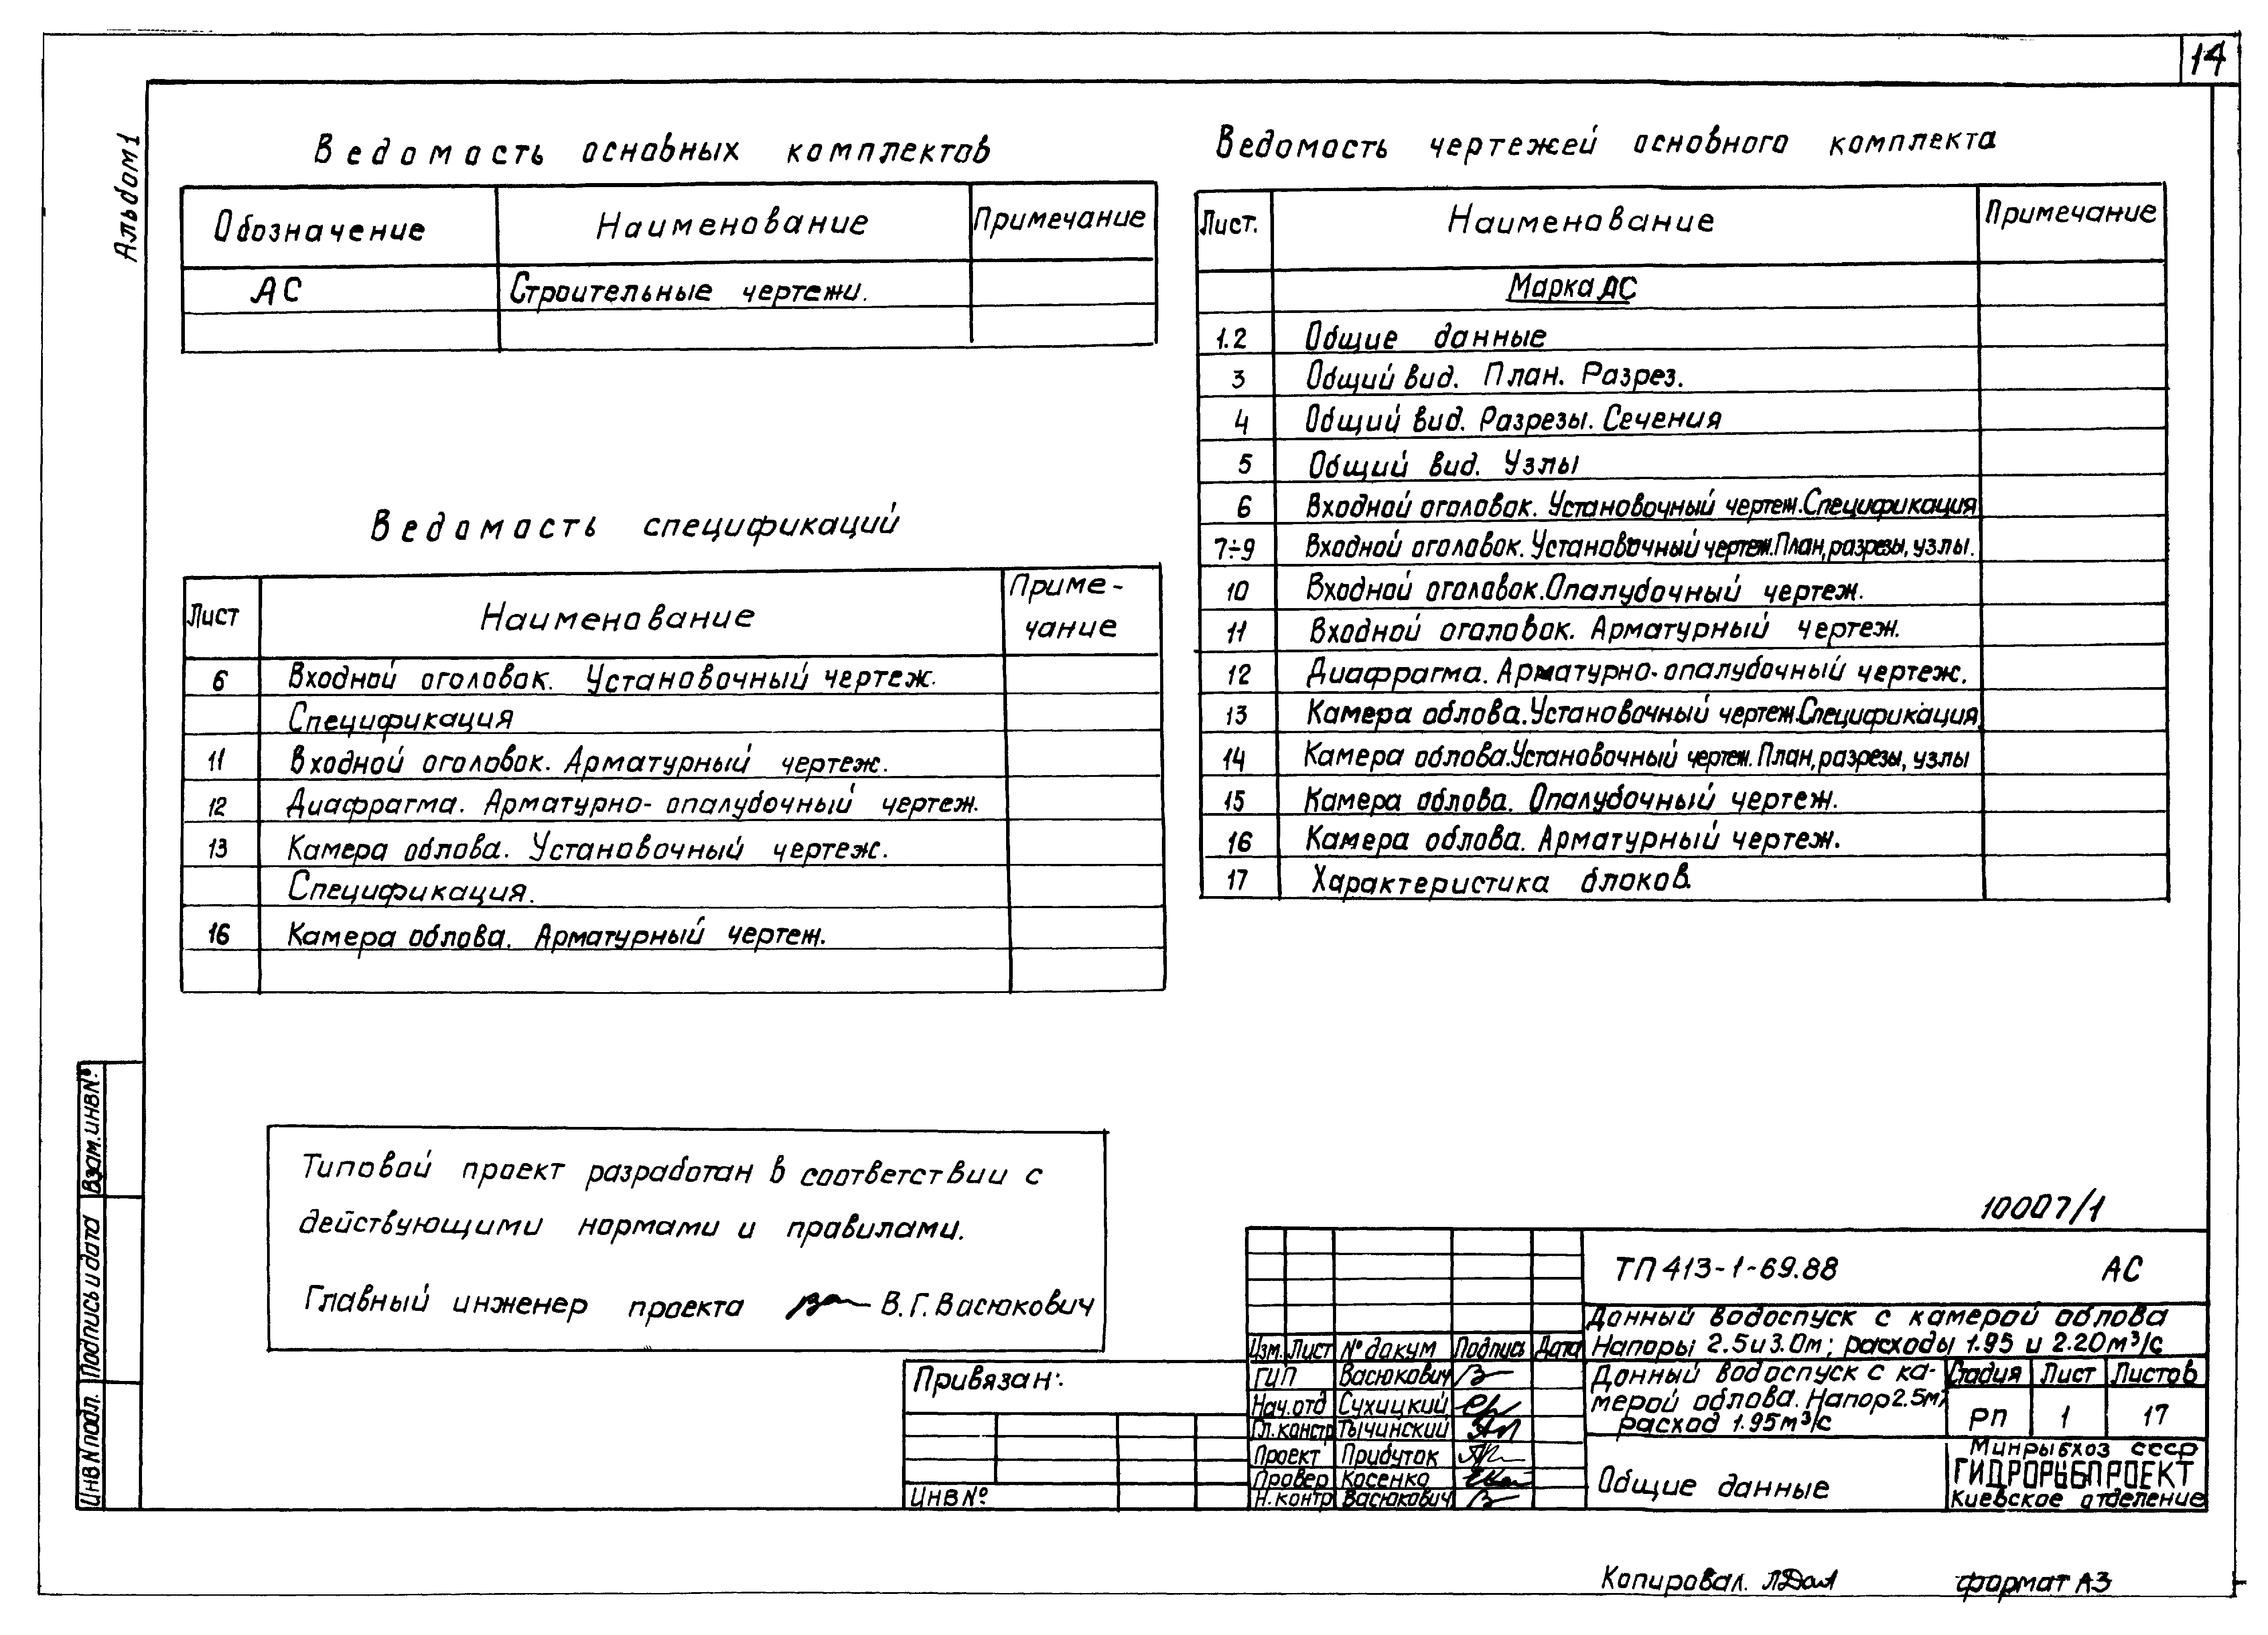 14
Альбом 1
Ведомость основных комплектов
Обозначение Наименование Примечание
АС Строительные чертежи.
Ведомость спецификаций
Лист Наименование Приме-
чание
6 Входной оголовок. Установочный чертеж.
Спецификация
11 Входной оголовок. Арматурный чертеж.
12 Диафрагма. Арматурно-опалубочный чертеж.
13 Камера облова. Установочный чертеж.
Спецификация.
16 Камера облова. Арматурный чертеж.
Ведомость чертежей основного комплекта
Лист. Наименование Примечание
Марка АС
1.2 Общие данные
3 Общий вид. План. Разрез.
4 Общий вид. Разрезы. Сечения
5 Общий вид. Узлы
6 Входной оголовок. Установочный чертеж. Спецификация
7÷9 Входной оголовок. Установочный чертеж. План, разрезы, узлы.
10 Входной оголовок. Опалубочный чертеж.
11 Входной оголовок. Арматурный чертеж.
12 Диафрагма. Арматурно-опалубочный чертеж.
13 Камера облова. Установочный чертеж. Спецификация
14 Камера облова. Установочный чертеж. План, разрезы, узлы
15 Камера облова. Опалубочный чертеж.
16 Камера облова. Арматурный чертеж.
17 Характеристика блоков.
Типовой проект разработан в соответствии с
действующими нормами и правилами.
Главный инженер проекта В.Г. Васюкович
Взам. инв №
Подпись и дата
Инв № подл.
Привязан:
Инв №
10007/1
ТП 413-1-69.88 АС
Донный водоспуск с камерой облова
Напоры 2.5 и 3.0м; расходы 1.95 и 2.20 м³/с
Изм. Лист № докум Подпись Дата
ГИП Васюкович
Нач. отд Сухицкий
Гл. констр Тычинский
Проект Прибуток
Провер Косенко
Н. контр Васюкович
Донный водоспуск с ка-
мерой облова. Напор 2.5м,
расход 1.95м³/с
Стадия Лист Листов
РП 1 17
Общие данные
Минрыбхоз СССР
ГИДРОРЫБПРОЕКТ
Киевское отделение
Копировал.
формат А3